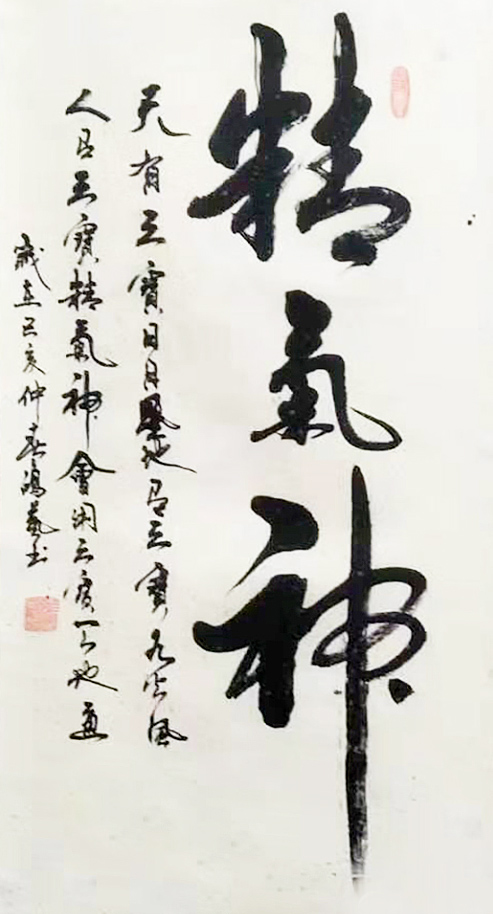 精氣神
天有三寶日月星地有三寶水火風
人有三寶精氣神會用三寶天地通
歲在己亥仲春鴻藝书